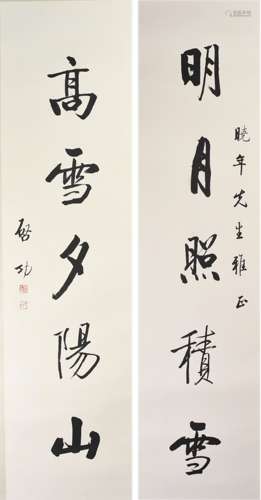 明月照積雪
曉年先生雅正
高雪夕陽山
啓功